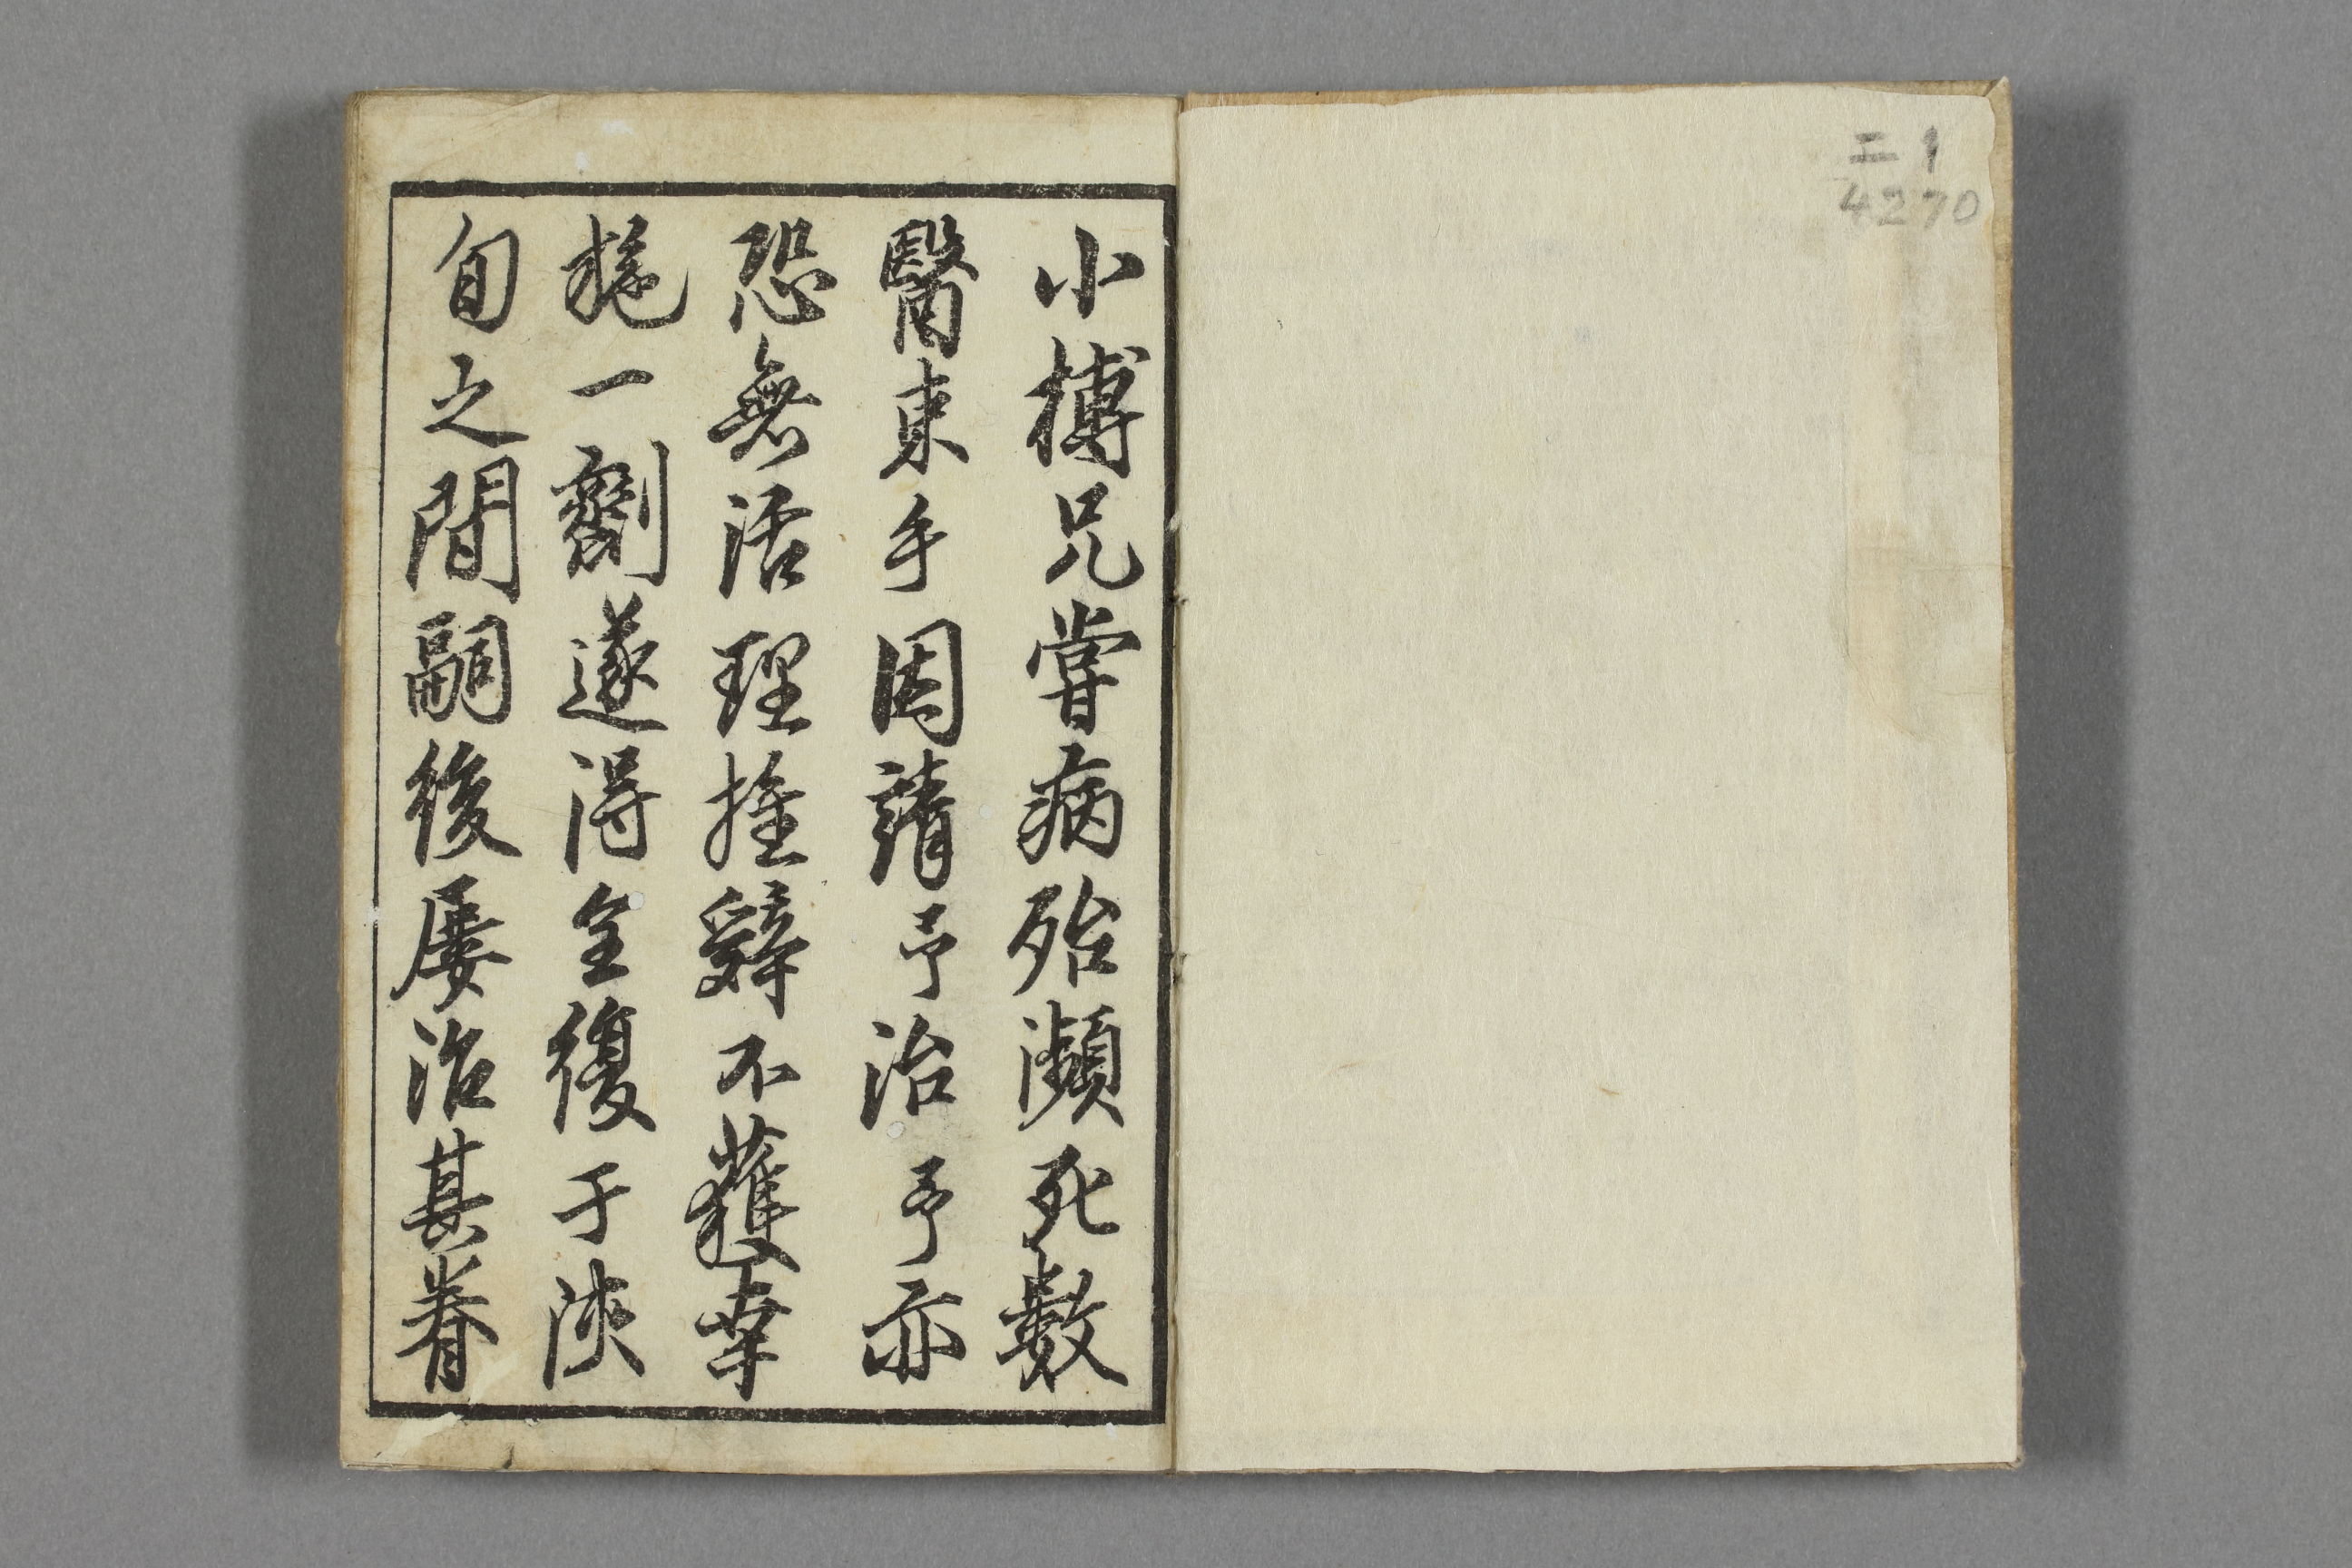 エ1
4270
小榑兄嘗病殆瀕死數
醫束手因請予治予亦
恐無活理推辭不獲幸
一劑遂得全復于浹
旬之間嗣後屢治其眷